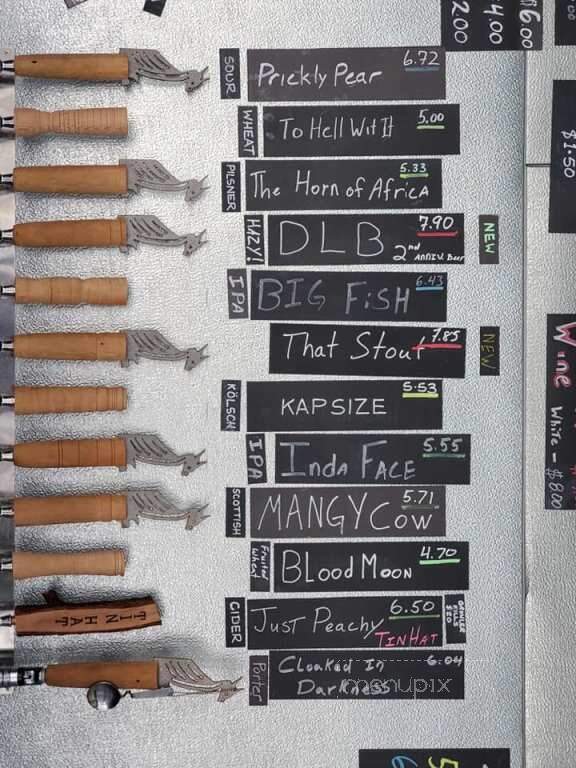 $6.00
4.00
2.00
SOUR Prickly Pear 6.72
WHEAT To Hell Wit It 5.00
$1.50
PILSNER The Horn of Africa 5.33
HAZY! DLB 7.90 NEW
2nd ANNIV. Beer
IPA BIG FiSH 6.43
That Stout 7.85 NEW
Wine
White - $8.00
KÖLSCH KAPSIZE 5.53
IPA Inda Face 5.55
SCOTTISH MANGY Cow 5.71
Fruited Wheat Blood Moon 4.70
TIN HAT
CIDER Just Peachy 6.50
TINHAT
GROWLER FILLS $20
Porter Cloaked In 6.04
Darkness
menupix